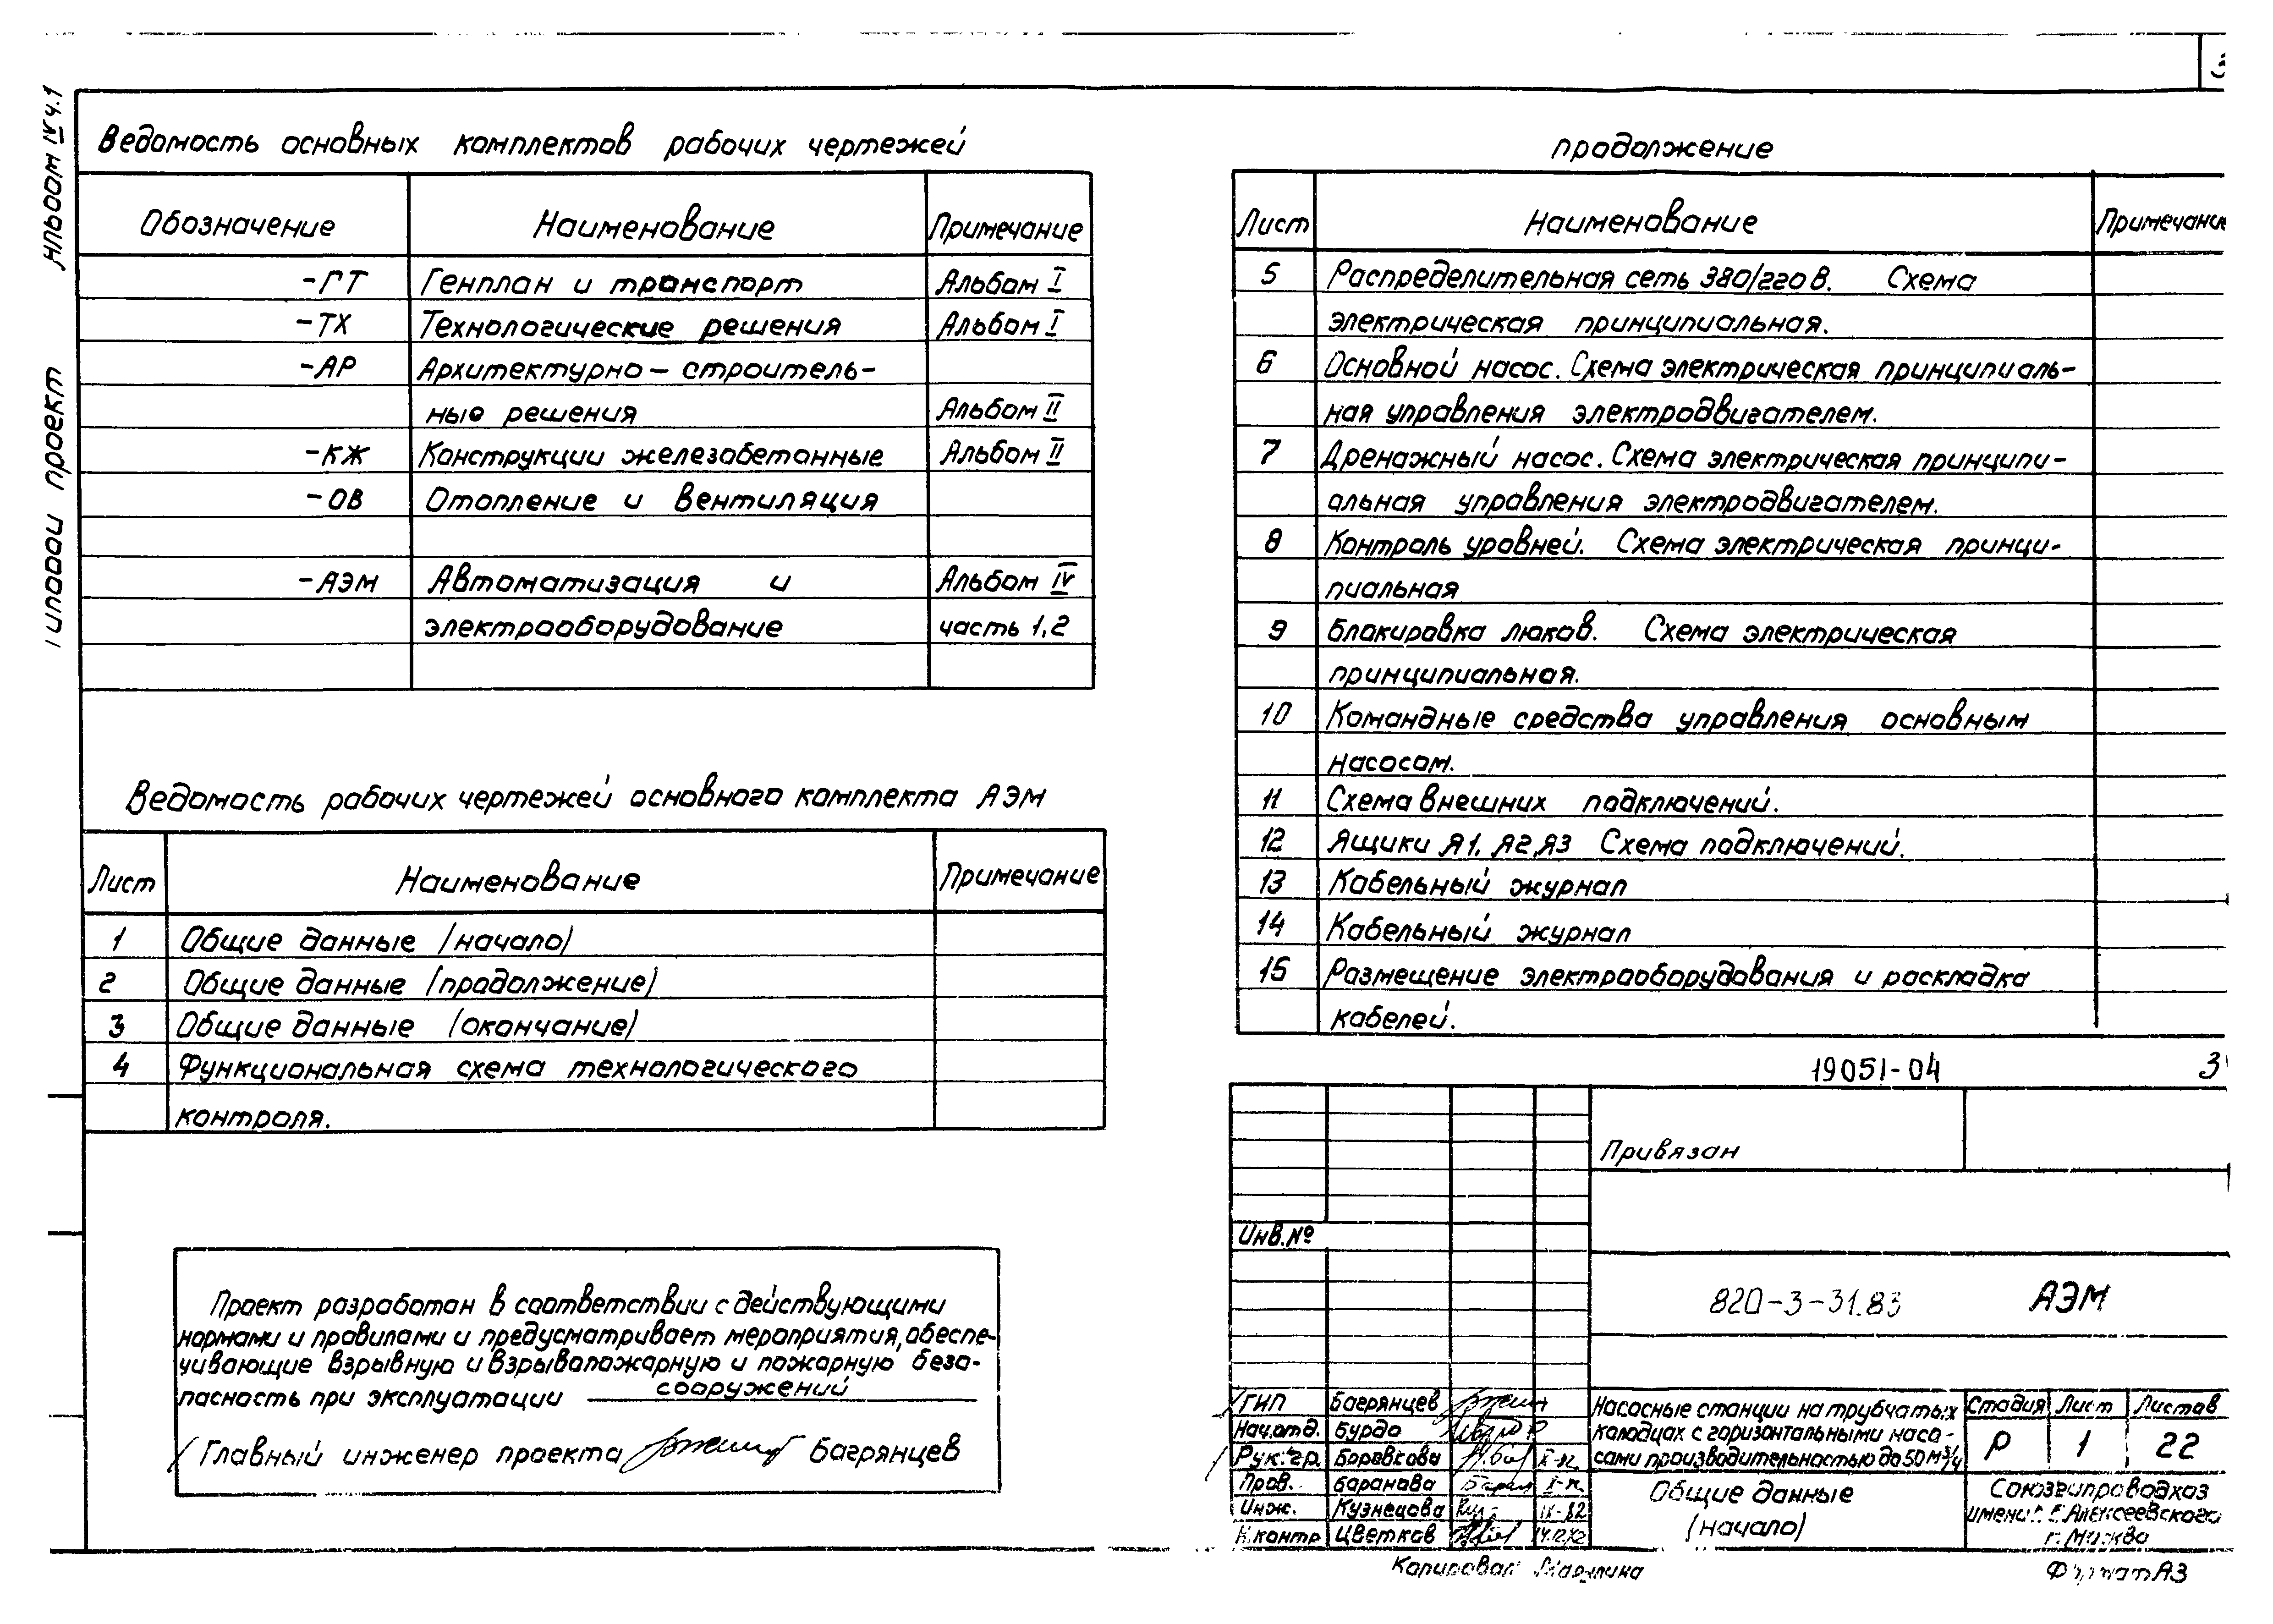 3
Альбом IV ч.1
Типовой проект
Ведомость основных комплектов рабочих чертежей
Обозначение Наименование Примечание
-ГТ Генплан и транспорт Альбом I
-ТХ Технологические решения Альбом I
-АР Архитектурно-строитель-
ные решения Альбом II
-КЖ Конструкции железобетонные Альбом II
-ОВ Отопление и вентиляция
-АЭМ Автоматизация и Альбом IV
электрооборудование часть 1,2
Ведомость рабочих чертежей основного комплекта АЭМ
Лист Наименование Примечание
1 Общие данные (начало)
2 Общие данные (продолжение)
3 Общие данные (окончание)
4 Функциональная схема технологического
контроля.
Проект разработан в соответствии с действующими
нормами и правилами и предусматривает мероприятия, обеспе-
чивающие взрывную и взрывопожарную и пожарную безо-
пасность при эксплуатации сооружений
Главный инженер проекта Багрянцев
продолжение
Лист Наименование Примечание
5 Распределительная сеть 380/220 В. Схема
электрическая принципиальная.
6 Основной насос. Схема электрическая принципиаль-
ная управления электродвигателем.
7 Дренажный насос. Схема электрическая принципи-
альная управления электродвигателем.
8 Контроль уровней. Схема электрическая принци-
пиальная
9 Блокировка люков. Схема электрическая
принципиальная.
10 Командные средства управления основным
насосом.
11 Схема внешних подключений.
12 Ящики Я1, Я2, Я3 Схема подключений.
13 Кабельный журнал
14 Кабельный журнал
15 Размещение электрооборудования и раскладка
кабелей.
19051-04 3
Привязан
Инв.№
820-3-31.83 АЭМ
ГИП Багрянцев
Нач.отд. Бурдо
Рук. гр. Боровкова X-82
Пров. Баранова X-82
Инж. Кузнецова IX-82
Н.контр Цветков 14.12.82
Насосные станции на трубчатых
колодцах с горизонтальными насо-
сами производительностью до 50 м³/ч
Стадия Лист Листов
Р 1 22
Общие данные
(начало)
Союзгипроводхоз
имени Е.Е.Алексеевского
г. Москва
Копировал Формат А3